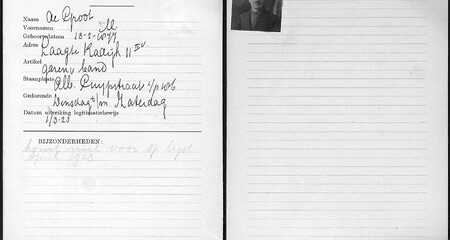 Naam de Groot
Voornamen M
Geboortedatum 18-2-1877
Adres Laagte Kadijk 11 III
Artikel garen, band
Staanplaats Alb. Cuypstraat t/o 106
Gedurende Dinsdag t/m Zaterdag
Datum uitreiking legitimatiebewijs
1/3-23
BIJZONDERHEDEN:
komt niet voor op lijst
April 1923